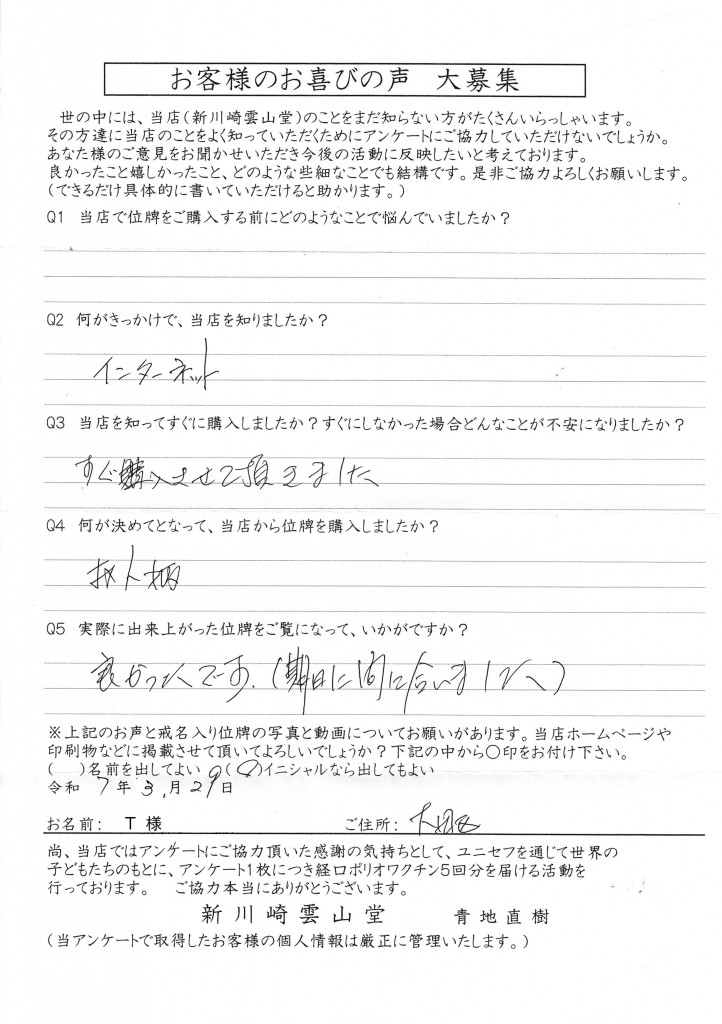 お客様のお喜びの声　大募集
世の中には、当店(新川崎雲山堂)のことをまだ知らない方がたくさんいらっしゃいます。
その方達に当店のことをよく知っていただくためにアンケートにご協力していただけないでしょうか。
あなた様のご意見をお聞かせいただき今後の活動に反映したいと考えております。
良かったこと嬉しかったこと、どのような些細なことでも結構です。是非ご協力よろしくお願いします。
(できるだけ具体的に書いていただけると助かります。)
Q1　当店で位牌をご購入する前にどのようなことで悩んでいましたか？
Q2　何がきっかけで、当店を知りましたか？
インターネット
Q3　当店を知ってすぐに購入しましたか？すぐにしなかった場合どんなことが不安になりましたか？
すぐ購入させて頂きました
Q4　何が決めてとなって、当店から位牌を購入しましたか？
お人柄
Q5　実際に出来上がった位牌をご覧になって、いかがですか？
良かったです。(期日に間に合いました)
※上記のお声と戒名入り位牌の写真と動画についてお願いがあります。当店ホームページや
印刷物などに掲載させて頂いてよろしいでしょうか？下記の中から〇印をお付け下さい。
(　)名前を出してよい　(〇)イニシャルなら出してもよい
令和 7年 3月 29日
お名前：　T 様　ご住所：
尚、当店ではアンケートにご協力頂いた感謝の気持ちとして、ユニセフを通じて世界の
子どもたちのもとに、アンケート1枚につき経口ポリオワクチン5回分を届ける活動を
行っております。　ご協力本当にありがとうございます。
新川崎雲山堂　青地直樹
(当アンケートで取得したお客様の個人情報は厳正に管理いたします。)